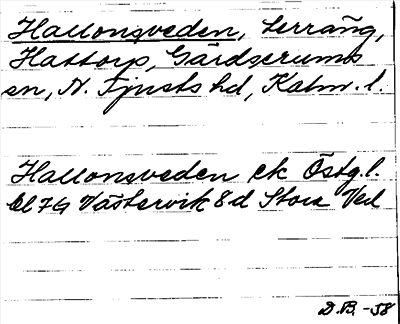 Hallonsveden, terräng,
Hattorp, Gärdserums
sn, N. Tjusts hd, Kalm. l.
Hallonsveden ek Östg. l.
bl 7G Västervik 8d Stora Ved
D.B. -58